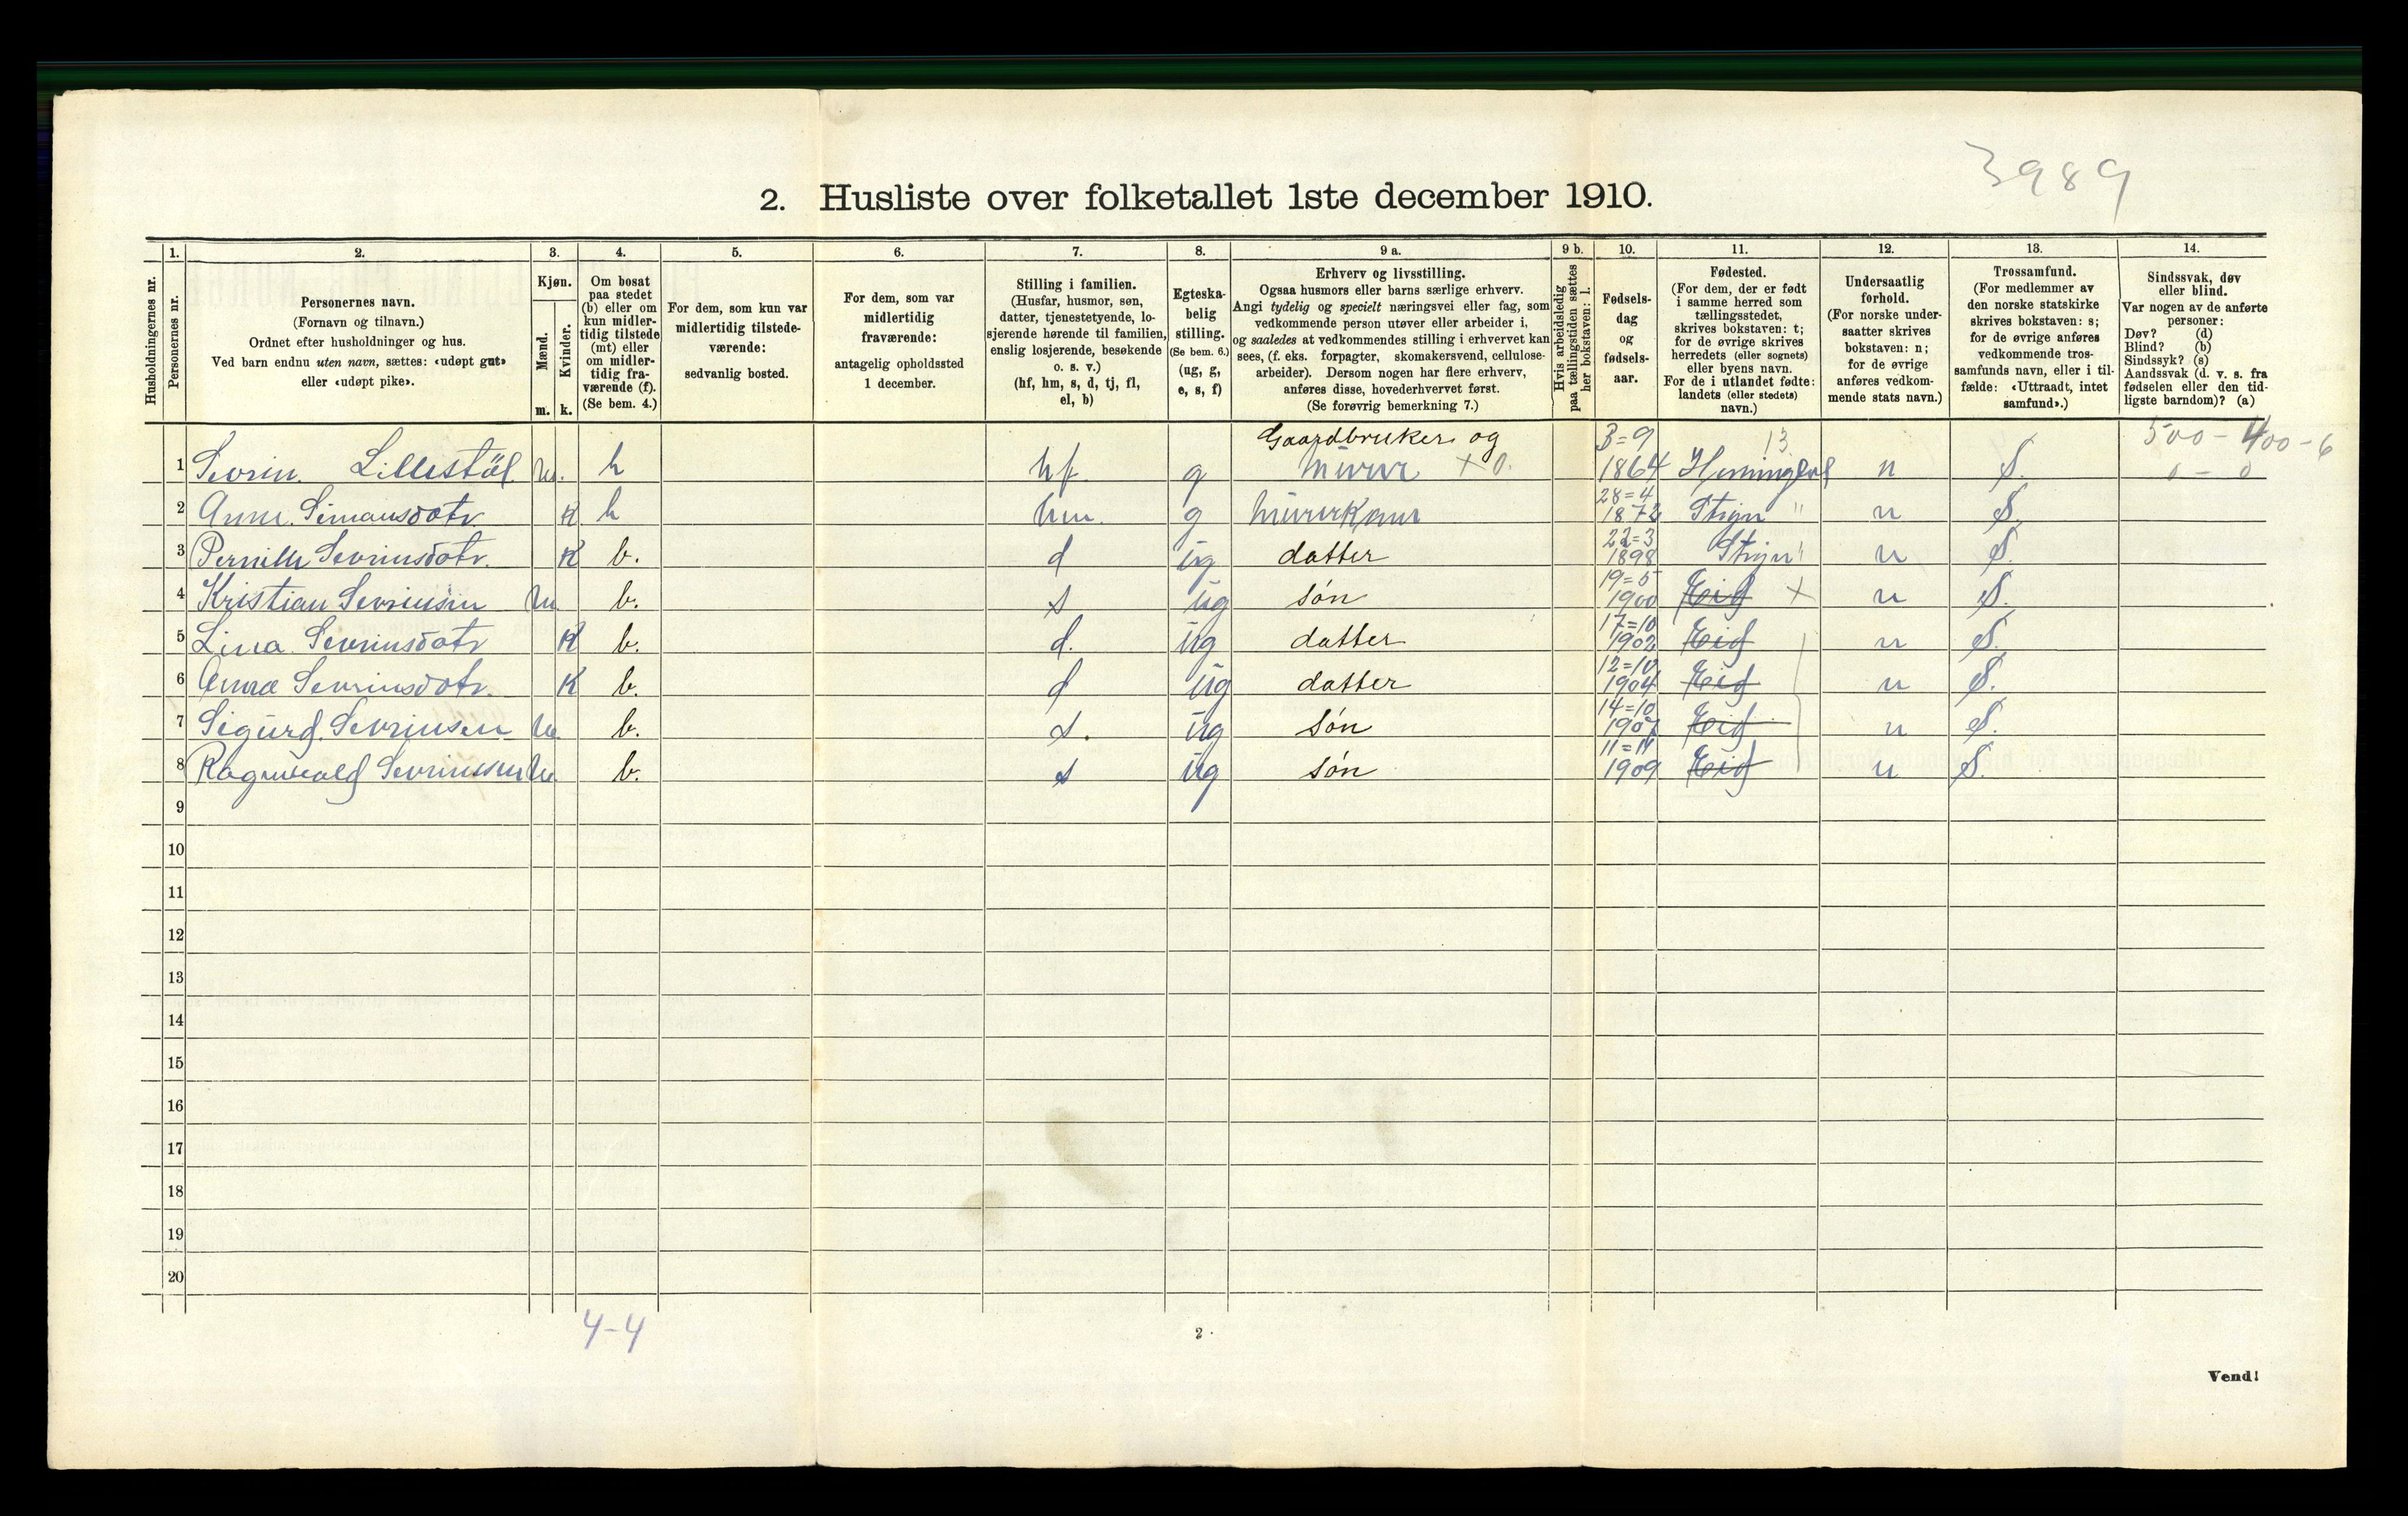 3989
2. Husliste over folketallet 1ste december 1910.
Husholdningernes nr.
1.
Personernes nr.
2.
Personernes navn.
(Fornavn og tilnavn.)
Ordnet efter husholdninger og hus.
Ved barn endnu uten navn, sættes: «udøpt gut»
eller «udøpt pike».
3.
Kjøn.
Mænd.
m.
Kvinder.
k.
4.
Om bosat
paa stedet
(b) eller om
kun midler-
tidig tilstede
(mt) eller
om midler-
tidig fra-
værende (f).
(Se bem. 4.)
5.
For dem, som kun var
midlertidig tilstede-
værende:
sedvanlig bosted.
6.
For dem, som var
midlertidig
fraværende:
antagelig opholdssted
1 december.
7.
Stilling i familien.
(Husfar, husmor, søn,
datter, tjenestetyende, lo-
sjerende hørende til familien,
enslig losjerende, besøkende
o. s. v.)
(hf, hm, s, d, tj, fl,
el, b)
8.
Egteska-
belig
stilling.
(Se bem. 6.)
(ug, g,
e, s, f)
9 a.
Erhverv og livsstilling.
Ogsaa husmors eller barns særlige erhverv.
Angi tydelig og specielt næringsvei eller fag, som
vedkommende person utøver eller arbeider i,
og saaledes at vedkommendes stilling i erhvervet kan
sees, (f. eks. forpagter, skomakersvend, cellulose-
arbeider). Dersom nogen har flere erhverv,
anføres disse, hovederhvervet først.
(Se forøvrig bemerkning 7.)
9 b.
Hvis arbeidsledig
paa tællingstiden sættes
her bokstaven: l.
10.
Fødsels-
dag
og
fødsels-
aar.
11.
Fødested.
(For dem, der er født
i samme herred som
tællingsstedet,
skrives bokstaven: t;
for de øvrige skrives
herredets (eller sognets)
eller byens navn.
For de i utlandet fødte:
landets (eller stedets)
navn.)
12.
Undersaatlig
forhold.
(For norske under-
saatter skrives
bokstaven: n;
for de øvrige
anføres vedkom-
mende stats navn.)
13.
Trossamfund.
(For medlemmer av
den norske statskirke
skrives bokstaven: s;
for de øvrige anføres
vedkommende tros-
samfunds navn, eller i til-
fælde: «Uttraadt, intet
samfund».)
14.
Sindssvak, døv
eller blind.
Var nogen av de anførte
personer:
Døv? (d)
Blind? (b)
Sindssyk? (s)
Aandssvak (d. v. s. fra
fødselen eller den tid-
ligste barndom)? (a)
Gaardbruker og 3=9 13 500 - 400 - 6
1 Sevrin. Lillestöl m. h hf. g murer + 0. 1864 n S. 0 - 0
28=4
2 Anne Simonsdotr K h hm. g murerkone 1872 Stryn " n S.
22=3
3 Pernille Sevrinsdotr. K b. d ug datter 1898 Stryn " n S.
19=5
4 Kristian Sevrinsen m. b. s ug søn 1900 Eid + n S.
17=10
5 Lina Sevrinsdotr K b. d. ug datter 1902 Eid n S.
12=10
6 Sevrinsdotr. K b. d ug datter 1904 Eid n S.
14=10
7 Sigurd Sevrinsen m. b. s. ug søn 1907 Eid n S.
11=11
8 Ragnvald Sevrinssen m. b. s ug søn 1909 Eid n S.
9
10
11
12
13
14
15
16
17
18
19
20
4-4
2
Vend!